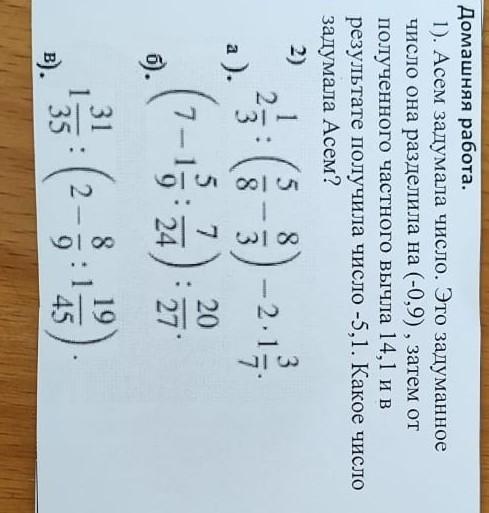 Домашняя работа.
1). Асем задумала число. Это задуманное
число она разделила на (-0,9) , затем от
полученного частного вычла 14,1 и в
результате получила число -5,1. Какое число
задумала Асем?
2)
а ). 2 1/3 : ( 5/8 − 8/3 ) − 2 · 1 3/7 .
б). ( 7 − 1 5/9 : 7/24 ) : 20/27 .
в). 1 31/35 : ( 2 − 8/9 : 1 19/45 ) .